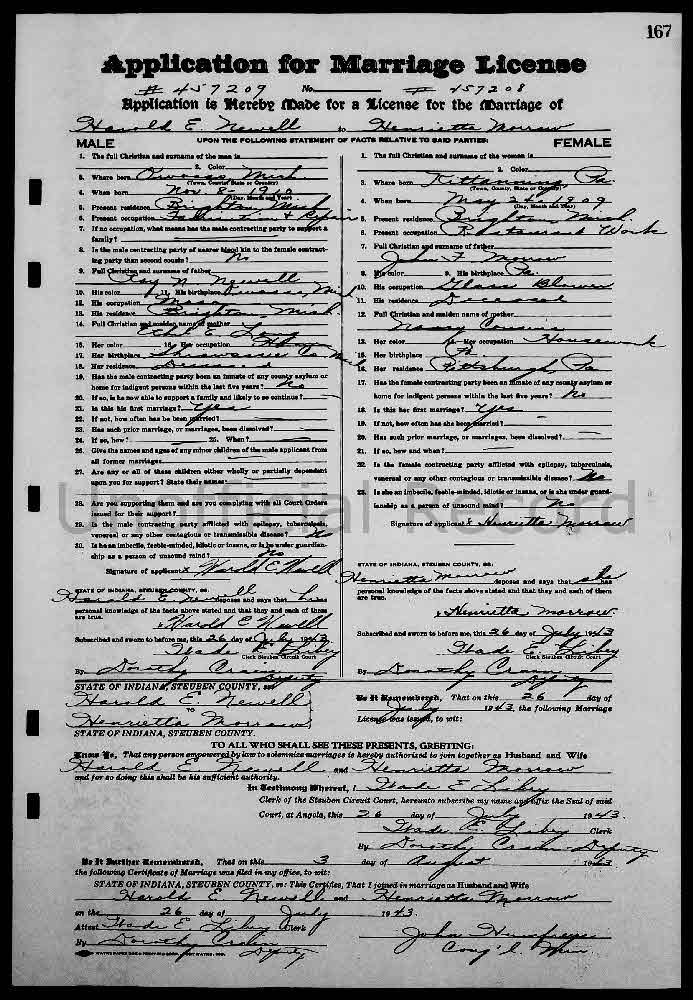 167
Application for Marriage License
# 457209 No. # 457208
Application is Hereby Made for a License for the Marriage of
Harold E Newell to Henrietta Morrow
MALE UPON THE FOLLOWING STATEMENT OF FACTS RELATIVE TO SAID PARTIES: FEMALE
1. The full Christian and surname of the man is
2. Color
3. Where born Owosso, Mich
(Town, County, State or Country)
4. When born Nov. 8 - 1910
(Day, Month and Year)
5. Present residence Brighton, Mich
6. Present occupation
7. If no occupation, what means has the male contracting party to support a
family?
8. Is the male contracting party of nearer blood kin to the female contract-
ing party than second cousins? No
9. Full Christian and surname of father
Roy N. Newell
10. His color 11. His birthplace Owosso, Mich
12. His occupation
13. His residence Brighton, Mich.
14. Full Christian and maiden name of mother
Ethel E. Long
15. Her color 16. Her occupation
17. Her birthplace Shiawassee Co., Mich
18. Her residence Deceased
19. Has the male contracting party been an inmate of any county asylum or
home for indigent persons within the last five years? No
20. If so, is he now able to support a family and likely to so continue?
21. Is this his first marriage? Yes
22. If not, how often has he been married?
23. Has such prior marriage, or marriages, been dissolved?
24. If so, how? 25. When?
26. Give the names and ages of any minor children of the male applicant from
all former marriages
27. Are any or all of these children either wholly or partially dependent
upon you for support? State their names:
28. Are you supporting them and are you complying with all Court Orders
issued for their support?
29. Is the male contracting party afflicted with epilepsy, tuberculosis,
venereal or any other contagious or transmissible disease? No
30. Is he an imbecile, feeble-minded, idiotic or insane, or is he under guardian-
ship as a person of unsound mind? No
Signature of applicant x Harold E. Newell
STATE OF INDIANA, STEUBEN COUNTY, SS:
Harold E. Newell deposes and says that he has
personal knowledge of the facts above stated and that they and each of them
are true.
x Harold E Newell
Subscribed and sworn to before me, this 26 day of July 1943
Wade E. Libey
Clerk Steuben Circuit Court
By Dorothy Deputy
1. The full Christian and surname of the woman is
2. Color
3. Where born Kittanning Pa.
(Town, County, State or Country)
4. When born May 24 - 1909
(Day, Month and Year)
5. Present residence Brighton Mich.
6. Present occupation Restaurant Work
7. Full Christian and surname of father
John F Morrow
8. His color 9. His birthplace Pa.
10. His occupation Glass Blower
11. His residence Deceased
12. Full Christian and maiden name of mother
Nancy
13. Her color 14. Her occupation Housework
15. Her birthplace Pa.
16. Her residence Pittsburgh, Pa
17. Has the female contracting party been an inmate of any county asylum or
home for indigent persons within the last five years? No
18. Is this her first marriage? Yes
19. If not, how often has she been married?
20. Has such prior marriage, or marriages, been dissolved?
21. If so, how and when?
22. Is the female contracting party afflicted with epilepsy, tuberculosis,
venereal or any other contagious or transmissible disease? No
23. Is she an imbecile, feeble-minded, idiotic or insane, or is she under guard-
ianship as a person of unsound mind? No
Signature of applicant x Henrietta Morrow
STATE OF INDIANA, STEUBEN COUNTY, SS:
Henrietta Morrow deposes and says that she has
personal knowledge of the facts above stated and that they and each of them
are true.
x Henrietta Morrow.
Subscribed and sworn to before me, this 26 day of July 1943
Wade E. Libey
Clerk Steuben Circuit Court
By Dorothy Deputy
Unofficial Record
STATE OF INDIANA, STEUBEN COUNTY, ss:
Harold E. Newell
TO
Henrietta Morrow
STATE OF INDIANA, STEUBEN COUNTY.
Be It Remembered, That on this 26 day of
July 1943 the following Marriage
License was issued, to wit:
TO ALL WHO SHALL SEE THESE PRESENTS, GREETING:
Know Ye, That any person empowered by law to solemnize marriages is hereby authorized to join together as Husband and Wife
Harold E Newell and Henrietta Morrow
and for so doing this shall be his sufficient authority.
In Testimony Whereof, I Wade E Libey
Clerk of the Steuben Circuit Court, hereunto subscribe my name and affix the Seal of said
Court, at Angola, this 26 day of July 1943.
Wade E. Libey Clerk
By Dorothy Deputy
Be It Further Remembered, That on this 3 day of August 1943
the following Certificate of Marriage was filed in my office, to wit:
STATE OF INDIANA, STEUBEN COUNTY, ss: This Certifies, That I joined in marriage as Husband and Wife
Harold E Newell and Henrietta Morrow
on the 26 day of July 1943.
Attest Wade E Libey Clerk John Humfreys
By Dorothy Deputy Cong'l. Min